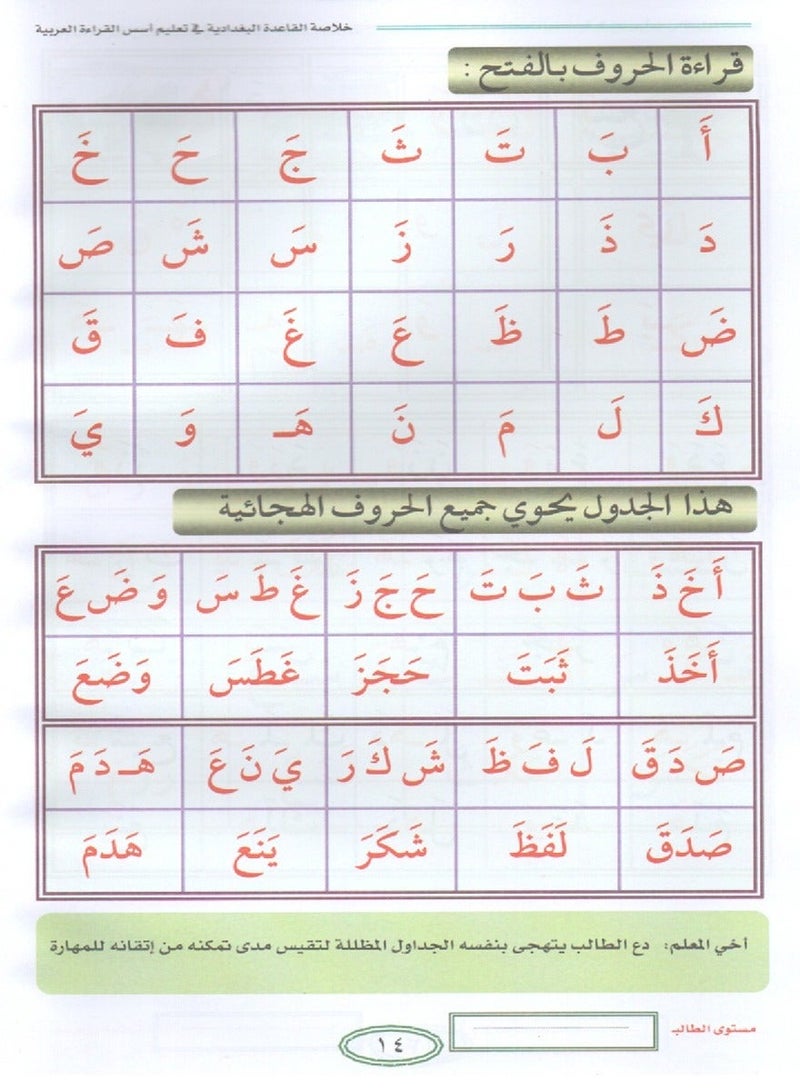 خلاصة القاعدة البغدادية في تعليم أسس القراءة العربية
قراءة الحروف بالفتح :
أَ بَ تَ ثَ جَ حَ خَ
دَ ذَ رَ زَ سَ شَ صَ
ضَ طَ ظَ عَ غَ فَ قَ
كَ لَ مَ نَ هَـ وَ يَ
هذا الجدول يحوي جميع الحروف الهجائية
أَ خَ ذَ ثَ بَ تَ حَ جَ زَ غَ طَ سَ وَ ضَ عَ
أَخَذَ ثَبَتَ حَجَزَ غَطَسَ وَضَعَ
صَ دَ قَ لَ فَ ظَ شَ كَ رَ يَ نَ عَ هَـ دَ مَ
صَدَقَ لَفَظَ شَكَرَ يَنَعَ هَدَمَ
أخي المعلم: دع الطالب يتهجى بنفسه الجداول المظللة لتقيس مدى تمكنه من إتقانه للمهارة
مستوى الطالب
١٤